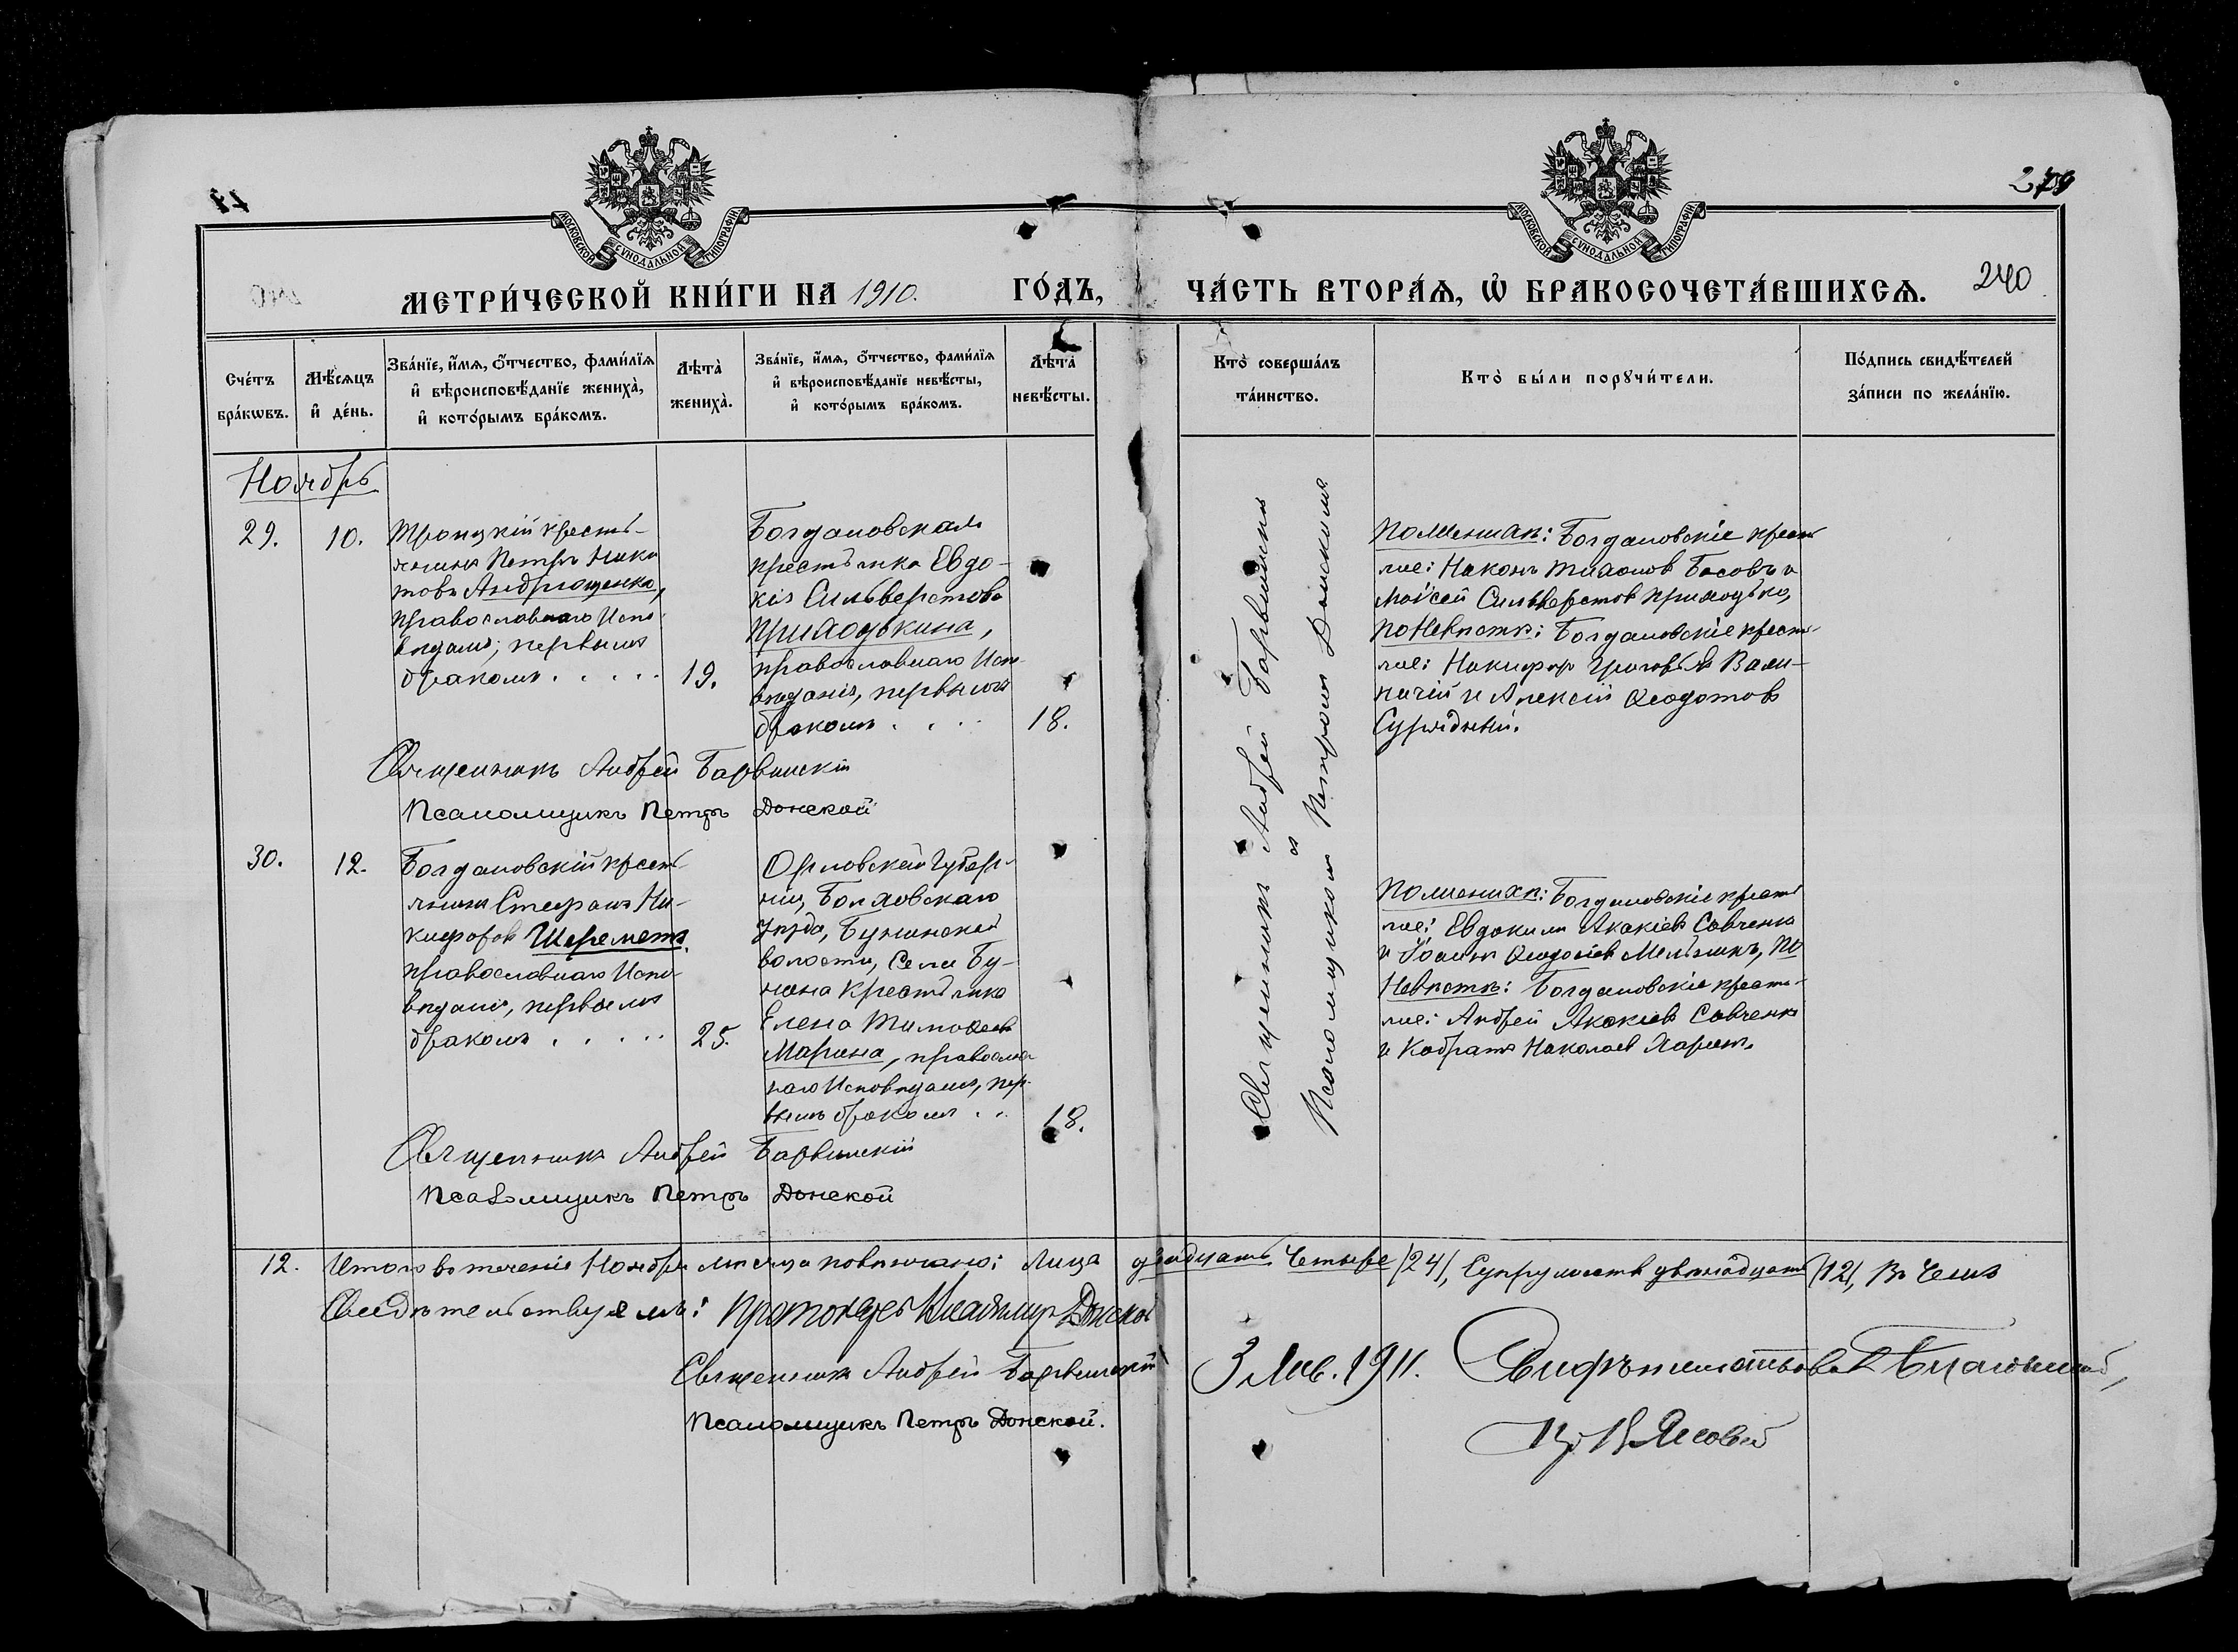 279
МОСКОВСКОЙ СѴНОДАЛЬНОЙ ТИПОГРАФІИ
МОСКОВСКОЙ СѴНОДАЛЬНОЙ ТИПОГРАФІИ
МЕТРИ́ЧЕСКОЙ КНИ́ГИ НА 1910. ГО́ДЪ,
ЧА́СТЬ ВТОРА́Ѧ, Ѡ҆ БРАКОСОЧЕТА́ВШИХСѦ. 240
Сче́тъ бра́кѡвъ.
Мѣ́сѧцъ и҆ де́нь.
Зва́нїе, и҆́мѧ, ѻ҆́тчество, фами́лїѧ
и҆ вѣроисповѣ́данїе жениха̀,
и҆ кото́рымъ бра́комъ.
Лѣта̀ жениха̀.
Зва́нїе, и҆́мѧ, ѻ҆́тчество, фами́лїѧ
и҆ вѣроисповѣ́данїе невѣ́сты,
и҆ кото́рымъ бра́комъ.
Лѣта̀ невѣ́сты.
Кто̀ соверша́лъ та́инство.
Кто̀ бы́ли порꙋчи́тели.
По́дпись свидѣ́телей
за́писи по жела́нїю.
Ноябрь
29.
10.
Троицкій кресть-
янинъ Петръ Ники
товъ Андрющенко,
православнаго Испо-
вѣданія; первымъ
бракомъ . . . . .
19.
Богдановская
крестьянка Евдо-
кія Сильверстова
Приходькина,
православнаго Испо-
вѣданія, первымъ
бракомъ . . . .
18.
Священникъ Андрей Барвинскій
Псаломщикъ Петръ Донской
По Женихѣ: Богдановскіе кресть
яне: Никонъ Тихонов Басовъ и
Моѵсей Сильверстов Приходько,
по Невѣстѣ: Богдановскіе кресть-
яне: Никифор
и Алексій Ѳеодотовъ
30.
12.
Богдановскій кресть
янинъ Стефанъ Ни-
кифоровъ Шереметъ,
православнаго Испо-
вѣданія, первымъ
бракомъ . . . . .
25.
Орловской Губер-
ніи, Болховскаго
Уѣзда, Бунинской
волости, Села Бу-
нина Крестьянка
Елена Тимоѳеева
Марина, православ-
наго Исповѣданія, пер-
вымъ бракомъ . .
18.
Священникъ Андрей Барвинскій
Псаломщикъ Петръ Донской
По женихѣ: Богдановскіе кресть
яне: Евдокимъ Акакіев Савченко
и Іоаннъ Ѳеодосіев Мельникъ, По
Невѣстѣ: Богдановскіе кресть-
яне: Андрей Акакіевъ Савченко
и Кодратъ Николаев
Священникъ Андрей Барвинскій
съ
Псаломщикомъ Петромъ Донскимъ
12. Итого въ теченіе Ноября мѣсяца повѣнчано: Лица двадцать четыре /24/, Супружествъ двѣнадцать /12/, Въ чемъ
Свидѣтельствуемъ: Протоіерей Владиміръ Донской
Священникъ Андрей Барвинскій
Псаломщикъ Петръ Донской.
3 Янв. 1911. Свидѣтельствовалъ Благочинный,